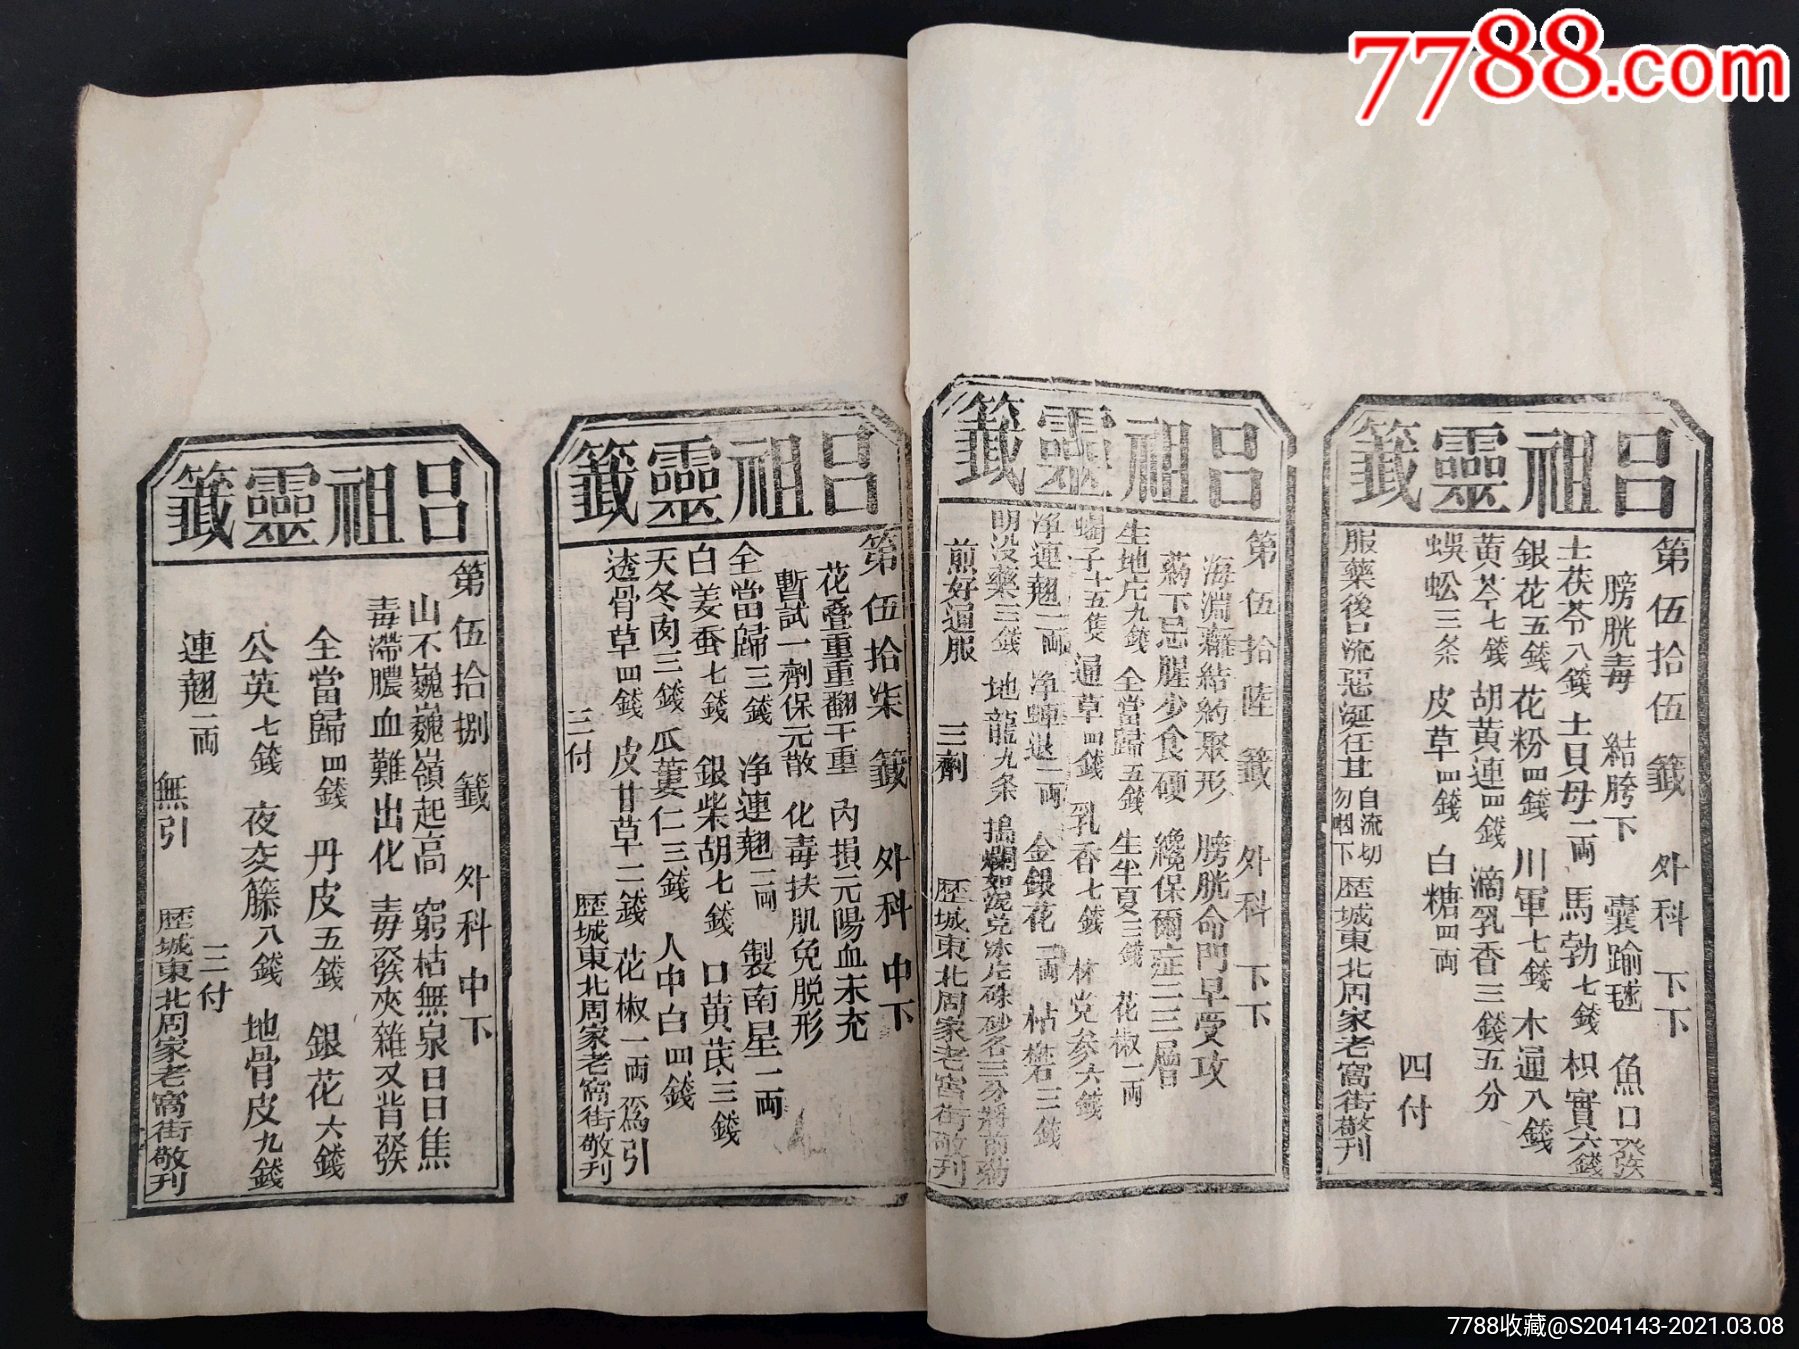 7788.com
呂祖靈籤
第伍拾伍籤 外科 下下
膀胱毒 結胯下 囊踰毬 魚口發
土茯苓八錢 土貝母一兩 馬勃七錢 枳實六錢
銀花五錢 花粉四錢 川軍七錢 木通八錢
黃芩七錢 胡黃連四錢 滴乳香三錢五分
蜈蚣三条 皮草四錢 白糖四兩 四付
服藥後口流惡涎任其自流切勿咽下 歷城東北周家老窩街敬刊
呂祖靈籤
第伍拾陸籤 外科 下下
海淵蘿結約聚形 膀胱命門早受攻
藥下忌腥少食硬 纔保爾症三三層
生地庀九錢 全當歸五錢 生半夏三錢 花椒一兩
蝎子十五隻 通草四錢 乳香七錢 林党參六錢
净連翹二兩 净蟬退一兩 金銀花一兩 枯礬三錢
明没藥三錢 地龍九条 搗爛如泥兑冰片硃砂各三分將前藥
煎好通服 三劑 歷城東北周家老窩街敬刊
呂祖靈籤
第伍拾柒籤 外科 中下
花叠重重翻千重 内損元陽血未充
暫試一劑保元散 化毒扶肌免脱形
全當歸三錢 净連翹二兩 製南星二兩
白姜蚕七錢 銀柴胡七錢 口黃芪三錢
天冬肉三錢 瓜蔞仁三錢 人中白四錢
透骨草四錢 皮甘草二錢 花椒一兩爲引
三付 歷城東北周家老窩街敬刊
呂祖靈籤
第伍拾捌籤 外科 中下
山不巍巍嶺起高 窮枯無泉日日焦
毒滯膿血難出化 毒發夾雜又背發
全當歸四錢 丹皮五錢 銀花六錢
公英七錢 夜交籐八錢 地骨皮九錢
連翹二兩 三付
無引 歷城東北周家老窩街敬刊
7788收藏@S204143-2021.03.08